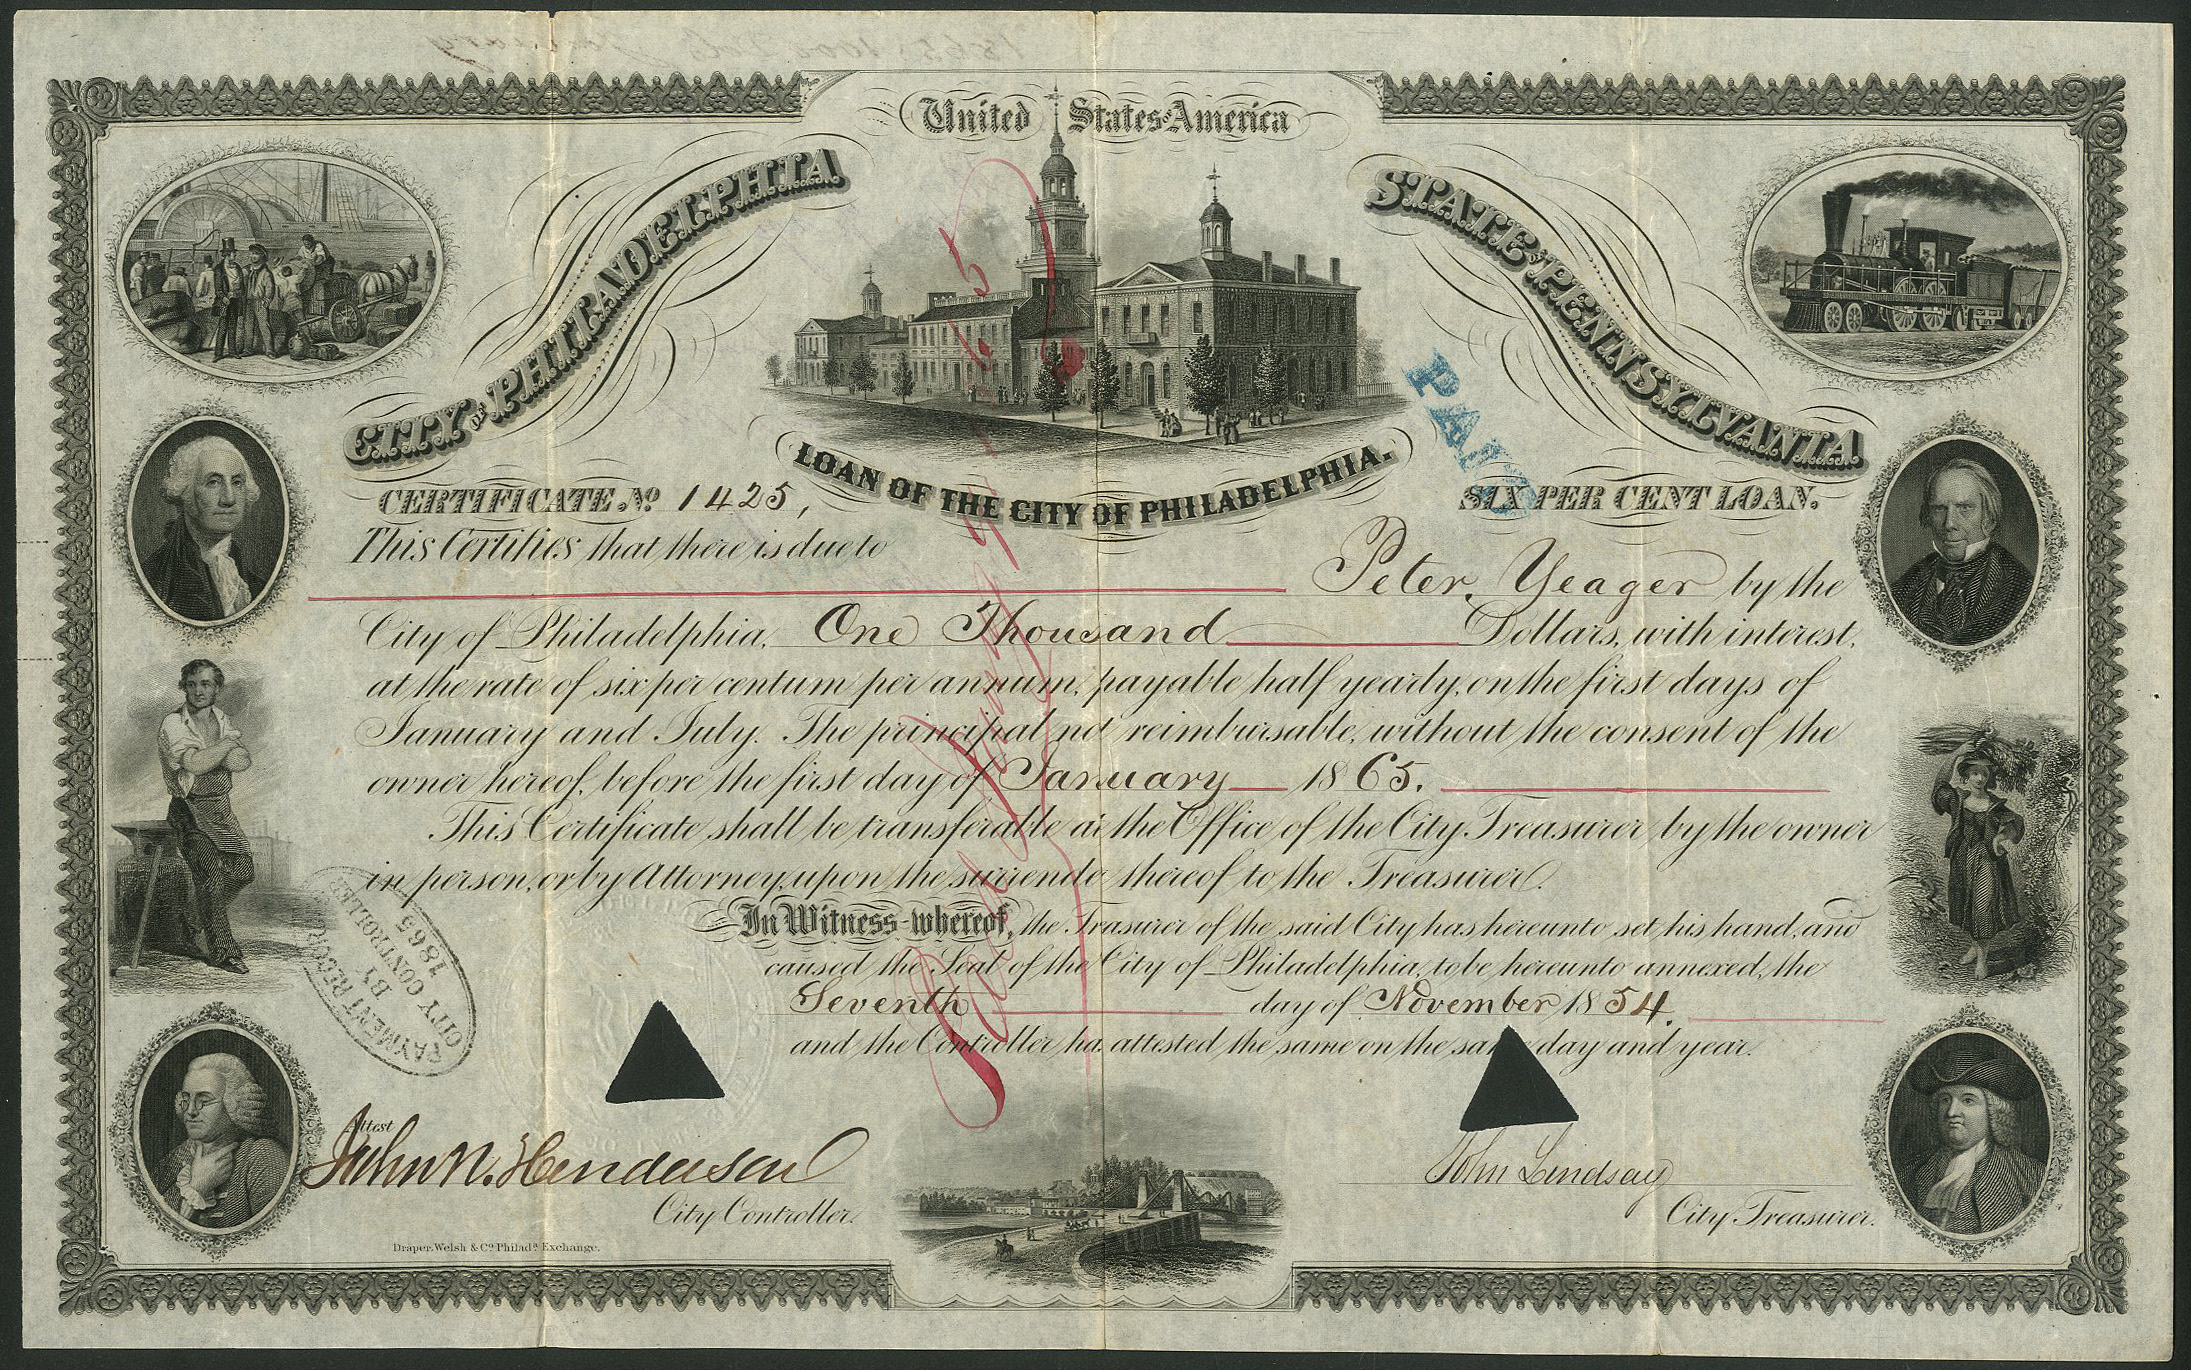 United States of America
CITY OF PHILADELPHIA
STATE OF PENNSYLVANIA
LOAN OF THE CITY OF PHILADELPHIA.
PAID
CERTIFICATE No. 1425,
SIX PER CENT LOAN.
This Certifies that there is due to
Peter Yeager by the
City of Philadelphia, One Thousand Dollars, with interest,
at the rate of six per centum per annum, payable half yearly, on the first days of
January and July. The principal not reimbursable, without the consent of the
owner hereof, before the first day of January 1865.
This Certificate shall be transferable at the Office of the City Treasurer by the owner
in person, or by Attorney, upon the surrender thereof to the Treasurer.
In Witness whereof, the Treasurer of the said City has hereunto set his hand, and
caused the Seal of the City of Philadelphia, to be hereunto annexed, the
Seventh day of November 1854.
and the Controller has attested the same on the same day and year.
PAYMENT RECORD
BY
1865
CITY CONTROLLER
Attest
John N. Henderson
City Controller.
John Lindsay
City Treasurer.
Draper, Welsh & Co. Philada. Exchange.